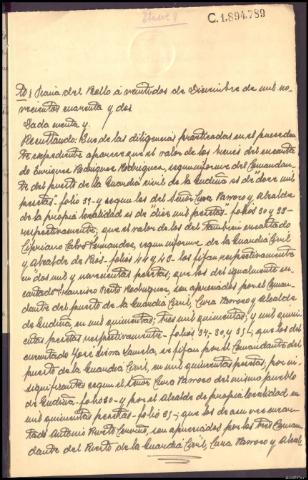 C.1.894.789
del Bollo á veintidos de Diciembre de mil no-
vecientos cuarenta y dos
Dada cuenta y
Resultando: Que de las diligencias practicadas en el preceden-
te expediente aparece que el valor de los bienes del encarta-
do Enrique Rodriguez Rodriguez, segun informe del Comandan-
te del puesto de la Guardia civil de La Gudiña es de doce mil
pesetas- folio 39- y segun los del Señor Cura Parroco y Alcalde
de la propia localidad es de diez mil pesetas- folios 30 y 33-
respectivamente, que el valor de los del tambien encartado
Cipriano Fernandez, segun informe de la Guardia Civil
y Alcalde de folios 44 y 48- los fijan respectivamente
en dos mil y pesetas, que los del igualmente en-
cartado Prieto Rodriguez, son apreciados por el Coman-
dante del puesto de la Guardia Civil, Cura Parroco y Alcalde
de Gudiña en mil quinientas, tres mil quinientas, y mil quinien-
tas pesetas respectivamente- folios 34- 30 y 35-, que los del
encartado José los fijan por el Comandante del
puesto de la Guardia Civil, en mil quinientas pesetas, por in-
significantes segun el Señor Cura Parroco del mismo pueblo
de Gudiña- folio 30- y por el Alcalde de propia localidad en
mil quinientas pesetas- folio 35-, que los de encar-
tado Antonio son apreciados por los Señores Coman-
dante del Puesto de la Guardia Civil, Cura Parroco y Alcal-